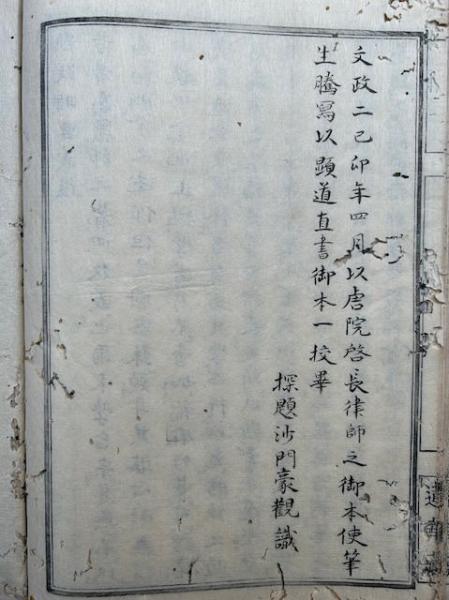 文政二己卯年四月以唐院啓長律師之御本使筆
生騰寫以顕道直書御本一挍畢
探題沙門豪觀識